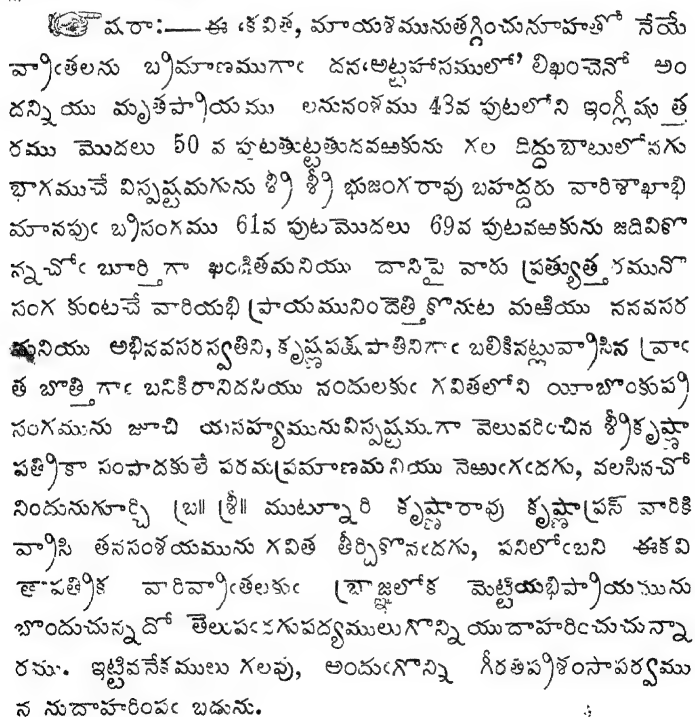 ☞ షరా:—ఈ కవిత, మాయశమునుతగ్గించునూహతో నేయే
వ్రాఁతలను బ్రమాణముగాఁ దన‘అట్టహాసములో’ లిఖించెనో అం
దన్నియు మృతప్రాయము లనునంశము 43వ పుటలోని ఇంగ్లీషు త్త
రము మొదలు 50 వ పుటతుట్టతుదవఱకును గల దిద్దుబాటులోనగు
భాగముచే విస్పష్టమగును శ్రీ శ్రీ భుజంగరావు బహద్దరు వారిశాఖాభి
మానపుఁ బ్రసంగము 61వ పుటమొదలు 69వ పుటవఱకును జదివికొ
న్నచోఁ బూర్తిగా ఖండితమనియు దానిపై వారు ప్రత్యుత్తరమునొ
సంగ కుంటచే వారియభి ప్రాయమునిందెత్తికొనుట మఱియు ననవసర
మనియు అభినవసరస్వతిని, కృష్ణపక్షపాతినిగాఁ బలికినట్లువ్రాసిన వ్రాఁ
త బొత్తిగాఁ బనికిరానిదనియు నందులకుఁ గవితలోని యీబొంకుప్ర
సంగమును జూచి యసహ్యమునువిస్పష్టముగా వెలువరించిన శ్రీకృష్ణా
పత్రికా సంపాదకులే పరమప్రమాణమనియు నెఱుఁగఁదగు, వలసినచో
నిందునుగూర్చి బ్ర॥ శ్రీ॥ ముట్నూరి కృష్ణారావు కృష్ణాప్రెస్ వారికి
వ్రాసి తనసంశయమును గవిత తీర్చికొనఁదగు, పనిలోఁబని ఈకవి
తాపత్రిక వారివ్రాఁతలకుఁ బ్రాజ్ఞలోక మెట్టియభిప్రాయమును
బొందుచున్నదో తెలుపఁదగుపద్యములుగొన్ని యుదాహరించుచున్నా
రము. ఇట్టివనేకములు గలవు, అందుఁగొన్ని గీరతిప్రశంసాపర్వము
న నుదాహరింపఁ బడును.